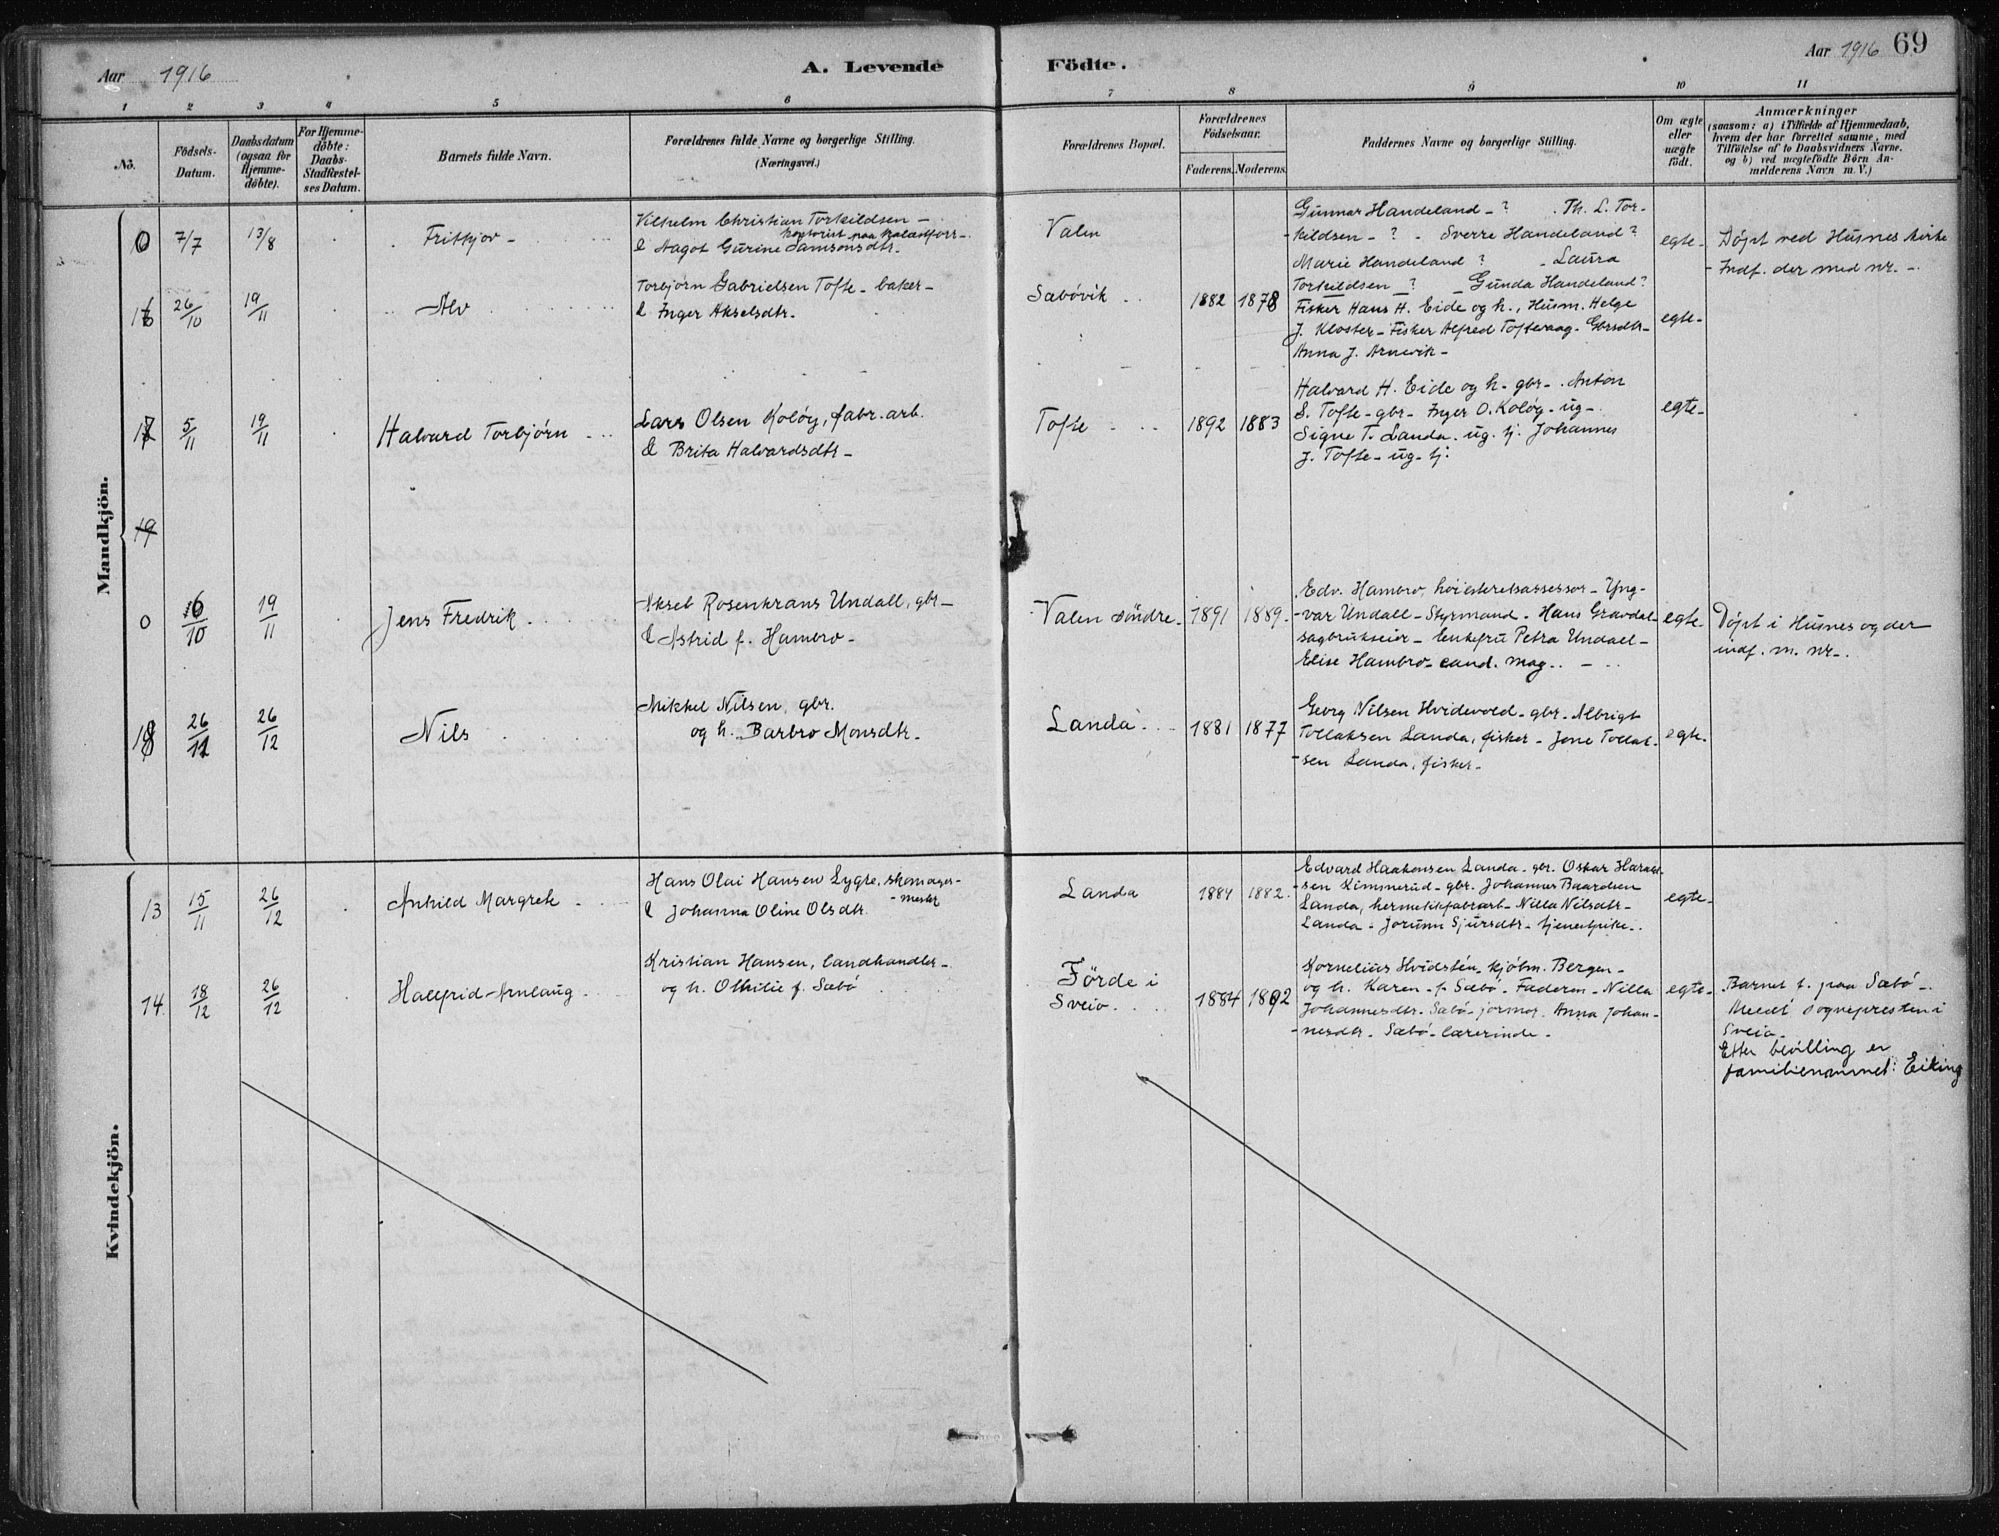 Aar 1916
A. Levende Födte.
Aar 1916 69
1 2 3 4 5 6 7 8 9 10 11
No.
Födsels-Datum.
Daabsdatum (ogsaa for Hjemmedöbte).
For Hjemmedöbte: Daabs-Stadfæstelses Datum.
Barnets fulde Navn.
Forældrenes fulde Navne og borgerlige Stilling.
(Næringsvei.)
Forældrenes Bopæl.
Forældrenes Födselsaar.
Faderens. Moderens.
Faddernes Navne og borgerlige Stilling.
Om ægte eller uægte födt.
Anmærkninger
(saasom: a) i Tilfælde af Hjemmedaab,
hvem der har forrettet samme, med
Tilföielse af to Daabsvidners Navne.
og b) ved uægtefödte Börn An-
melderens Navn m. V.)
Mandkjön.
0 7/7 13/8 Fritkjov -
Vilhelm Christian Torkildsen -
kontorist paa
& Aagot Gurine Samsonsdtr.
Valen
Gunnar Handeland - ? Th. L. Tor-
kildsen - ? - Sverre Handeland ?
Marie Handeland ? - Laura
Torkildsen ? - Gunda Handeland ?
egte-
Döpt ved Husnes kirke
- Indf. der med nr. -
16 26/10 19/11 Alv
Torbjørn Gabrielsen Tofte - baker -
& Inger Akselsdtr.
Sæbövik 1882 1878
Fisker Hans H. Eide og h., Husm. Helge
J. Kloster - Fisker Alfred Toftevaag - Gbrsdtr-
Anna J. Arnevik -
egte-
17 5/11 19/11 Halvard Torbjörn
Lars Olsen Kolöy, fabr. arb.
& Brita Halvardsdtr -
Tofte 1892 1883
Halvard H. Eide og h - gbr - Anton
S. Tofte - gbr - Inger O. Kolöy - ug -
Signe T. Landa - ug. tj. Johannes
J. Tofte - ug - tj.
egte-
19
0 16/10 19/11 Jens Fredrik
Rosenkrans Undall, gbr -
& Astrid f. Hambro -
Valen söndre. 1891 1889.
Edv. Hambro, höiesteretsassessor - Yng-
-var Undall - Styrmand - Hans Gravdal -
sagbrukseier - Enkefru Petra Undall -
Elise Hambro - cand. mag. -
egte-
Döpt i Husnes og der
indf. m. nr -.
18 26/11 26/12 Nils
Mikkel Nilsen, gbr.
og h. Barbro Monsdtr.
Landa 1881 1877
Georg Nilsen Hvidevold - gbr - Albrigt
Tollaksen Landa, fisker - Jone Tollak-
-sen Landa, fisker -
egte-
Kvindekjön.
13 15/11 26/12 Ankild Margrete
Hans Olai Hansen Lygre, skomager-
- mester
& Johanna Oline Olsdtr
Landa 1884 1882.
Edvard Haakonsen Landa - gbr. Oskar Harald-
-sen Kimmerud - gbr. Johannes Baardsen
Landa, hermetikfabrarb - Nilla Nilsdtr -
Landa - Jorunn Sjursdtr - tjenestpike -
egte-
14. 18/12 26/12 Hallfrid-Arnlaug
Kristian Hansen, landhandler -
og h. Othilie f. Sæbö
Förde i
Sveio 1884 1892
Kornelius Hvidsten - kjöbm. Bergen -
og h. Karen - f. Sæbö - Faderen - Nilla
Johannesdtr. Sæbö - jormor. Anna Johan-
-nesdtr - Sæbö - lærerinde -
egte-
Barnet f. paa Sæbö -
Meldt sognepresten i
Sveio -
Etter bevilling er
familienavnet: Eiking